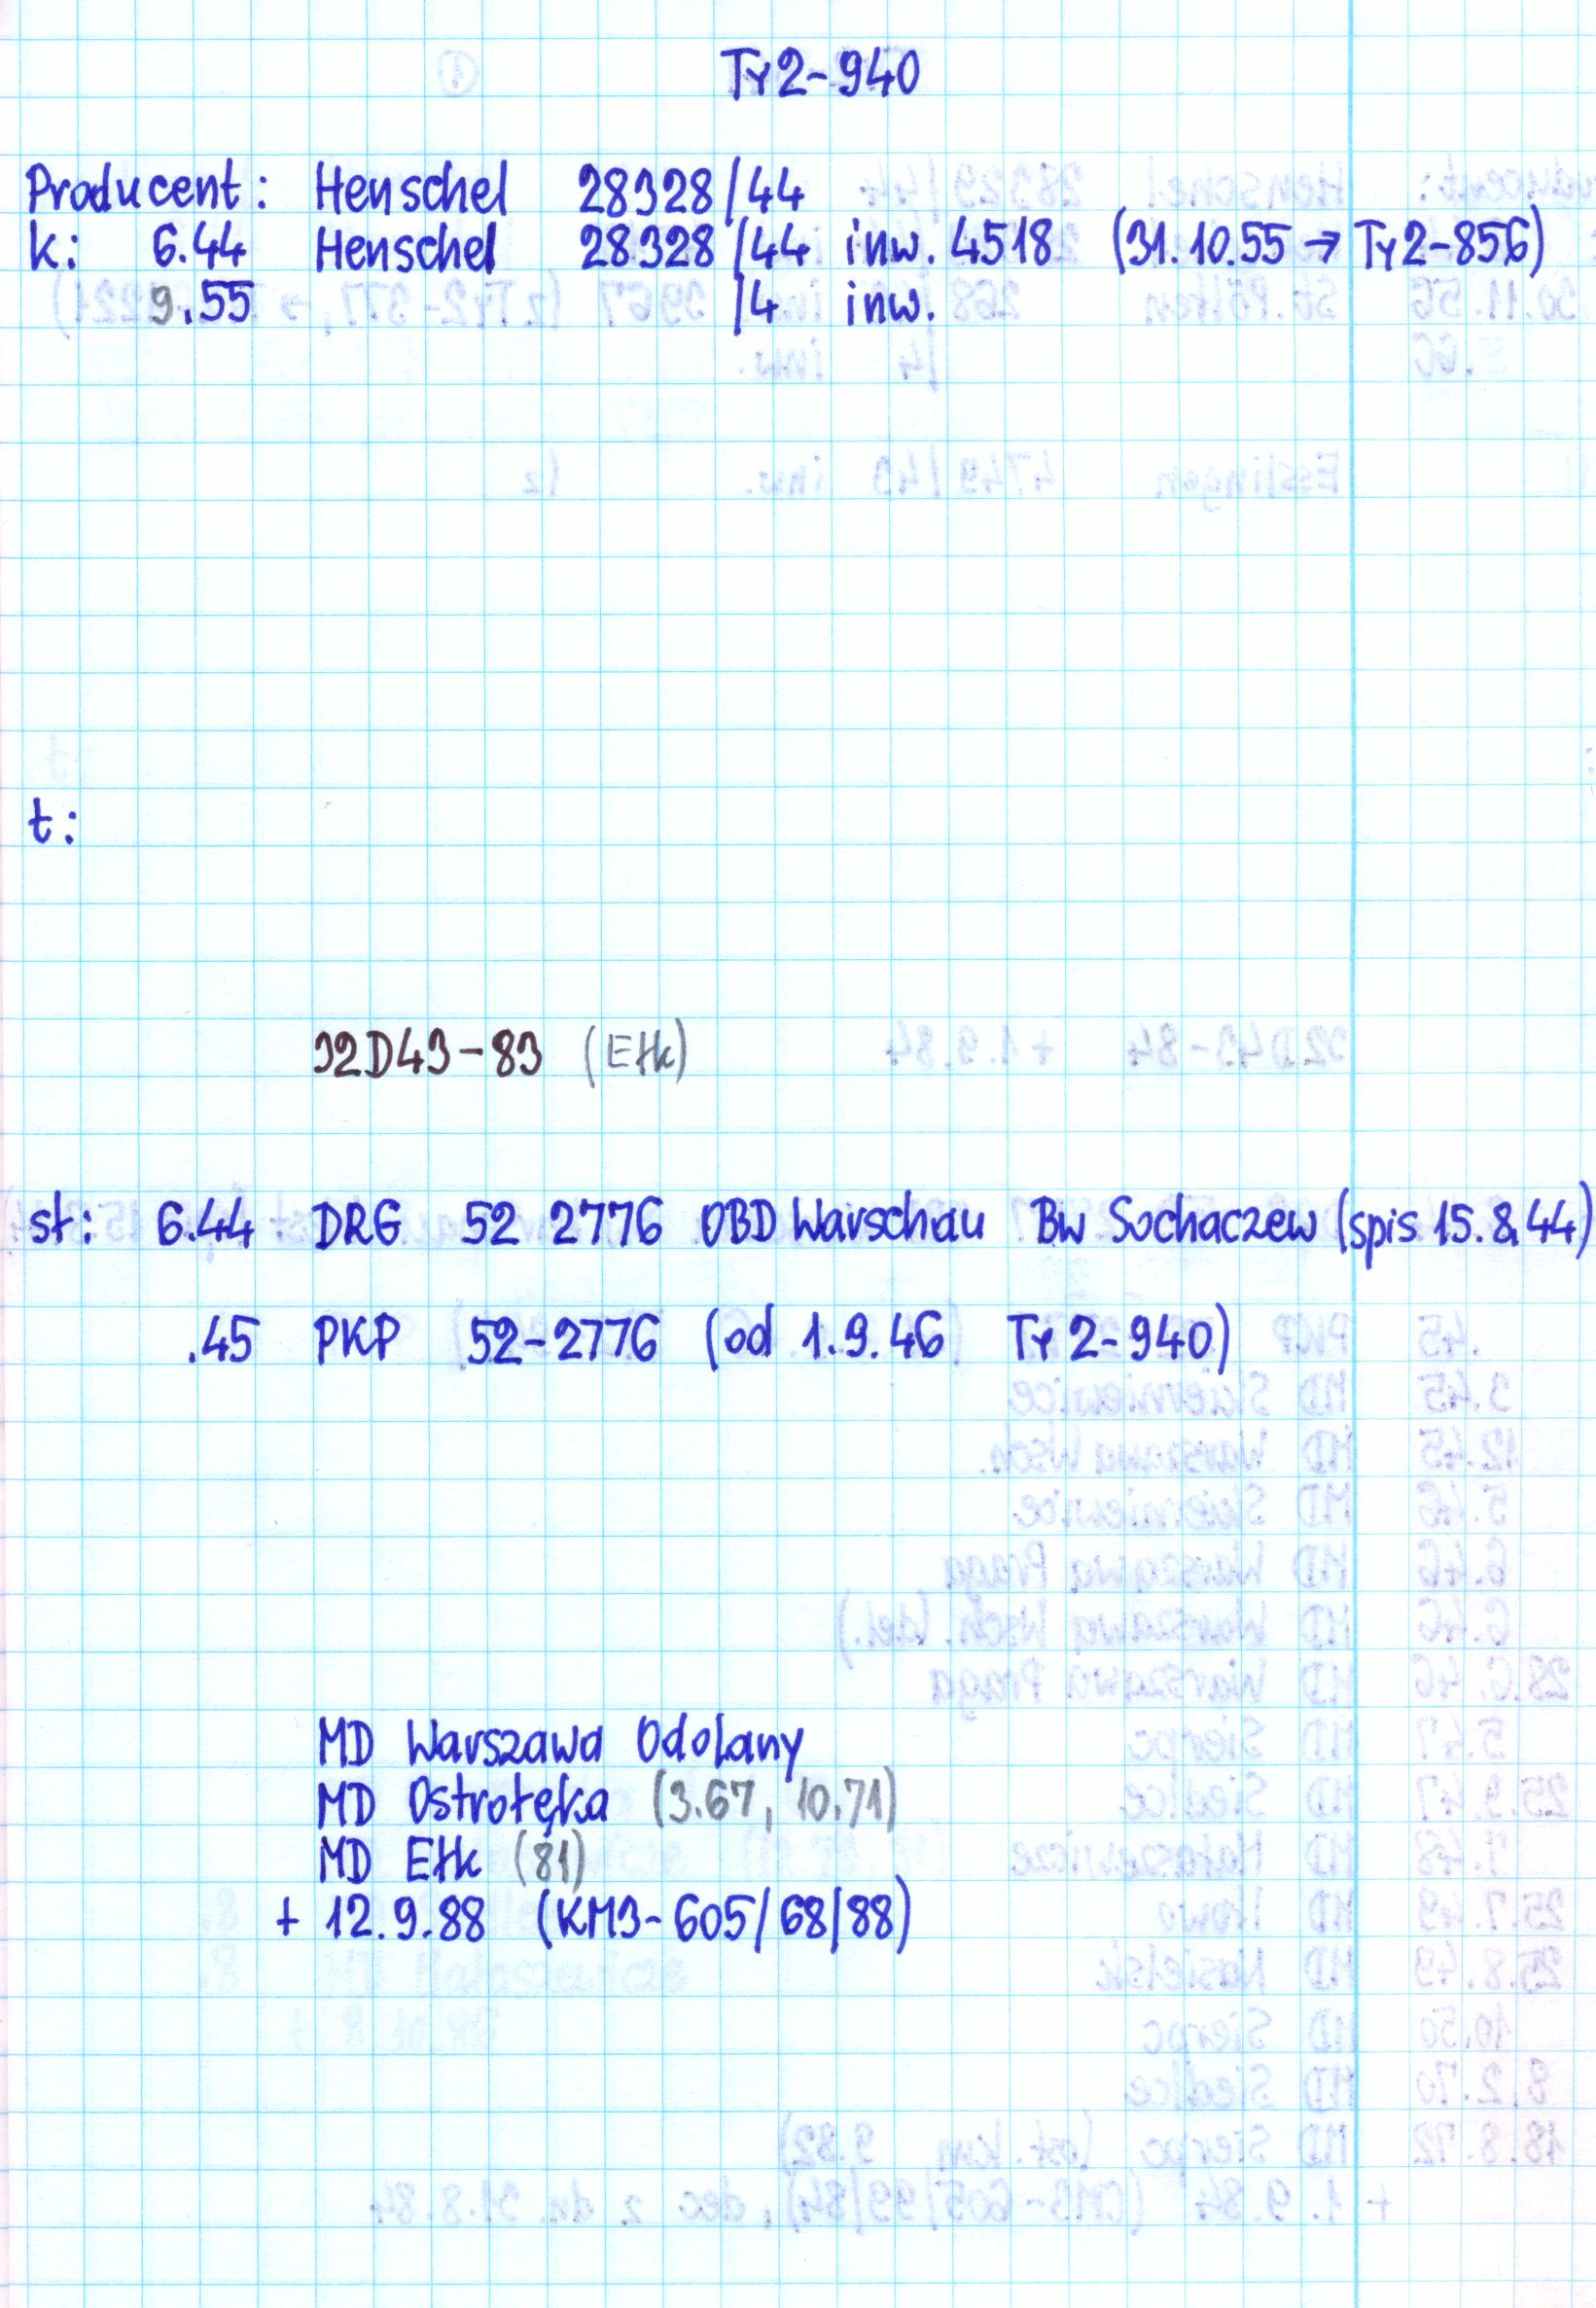 Ty2-940
Producent: Henschel 28328/44
k: 6.44 Henschel 28328/44 inw. 4518 (31.10.55 → Ty2-856)
9.55 /4 inw.
t:
32D43-83 (Ełk)
st: 6.44 DRG 52 2776 OBD Warschau Bw Sochaczew (spis 15.8.44)
.45 PKP 52-2776 (od 1.9.46 Ty2-940)
MD Warszawa Odolany
MD Ostrołęka (3.67, 10.71)
MD Ełk (81)
+ 12.9.88 (KM3-605/68/88)